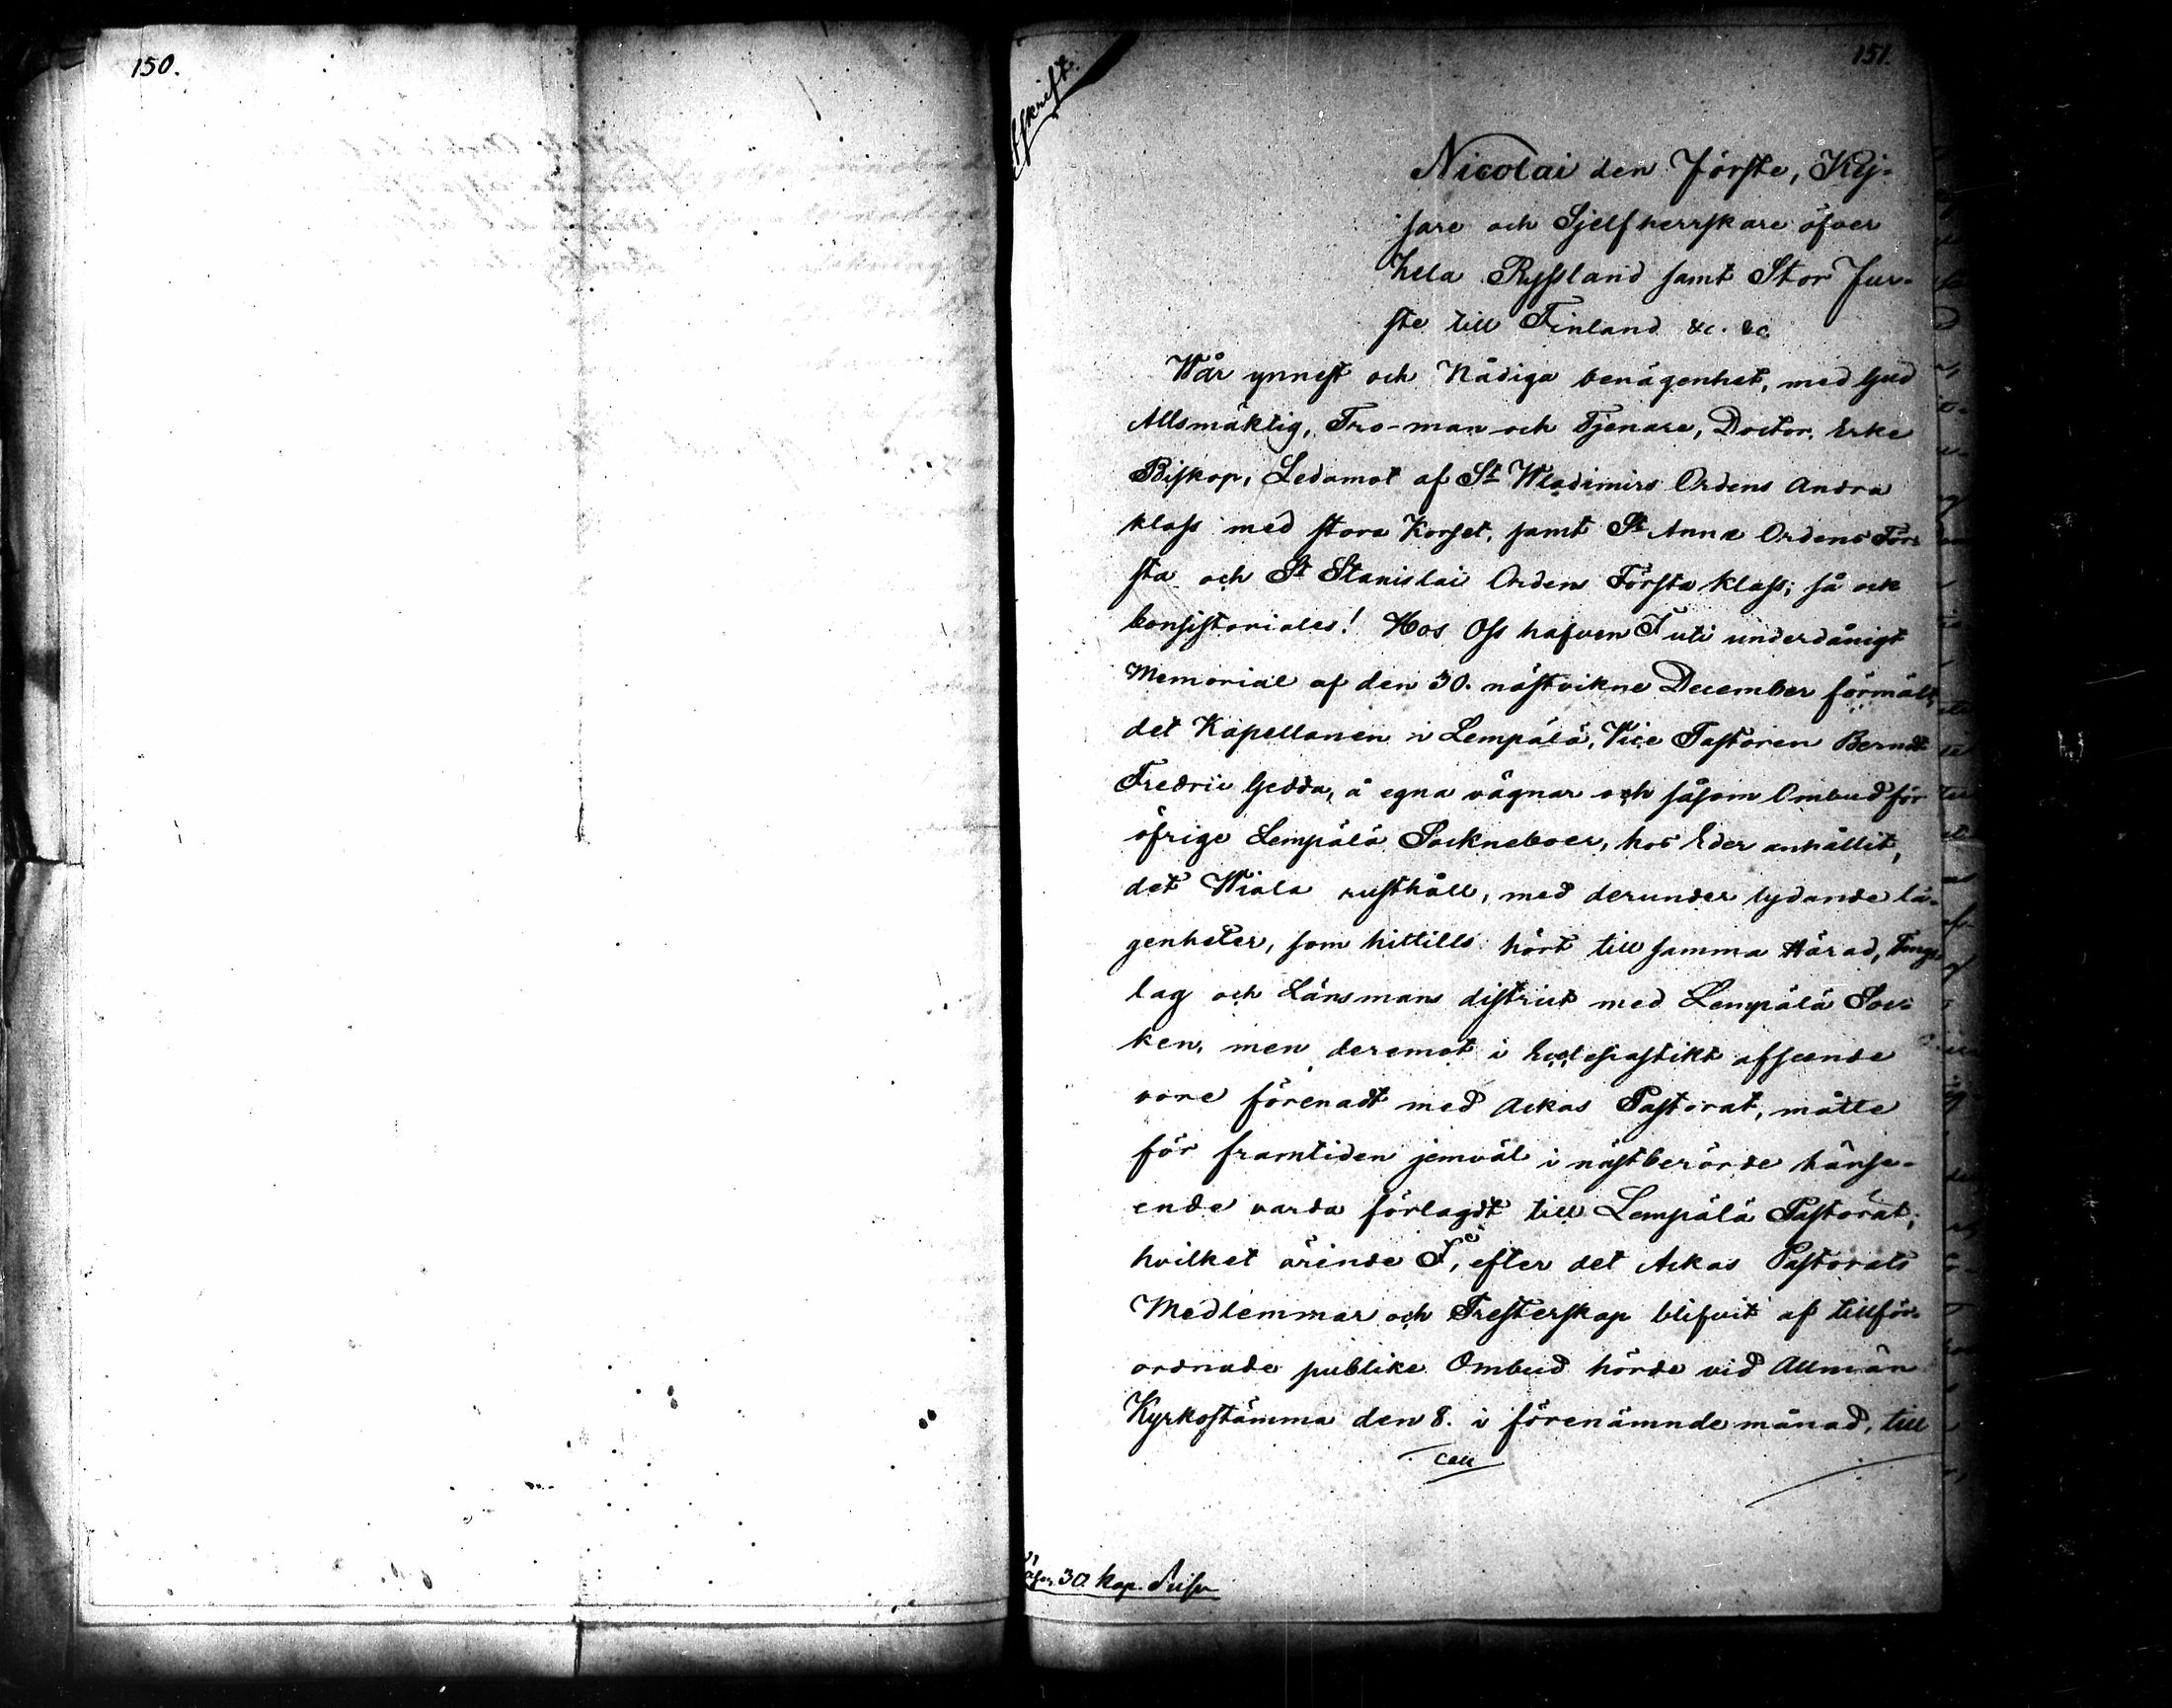 150.
151.
Afskrift.
Nicolai den Förste, Kej-
sare och Sjelfherrskare öfver
hela Ryssland samt Stor Fur-
ste till Finland &c. &c.
Wår ynnest och Nådiga benägenhet, med Gud
Allsmäktig, Tro-man och Tjenare, Doctor, Erke
Biskop, Ledamot af St Wladimirs Ordens Andra
klass med stora Korset, samt St Annæ Ordens För-
sta och St Stanislai Orden Första klass; så ock
Consistoriales! Hos Oss hafven I uti underdånigt
Memorial af den 30. nästvikne December förmält,
det Kapellanen i Lempälä, Vice Pastoren Berndt
Fredric Gedda, å egna vägnar och såsom Ombud för
öfrige Lempälä Sockneboer, hos Eder anhållit,
det Wiala rusthåll, med derunder lydande lä-
genheter, som hittills hört till samma Härad, Tings
lag och Länsmans district med Lempälä Soc-
ken, men deremot i Ecclesiastikt afseende
vore förenadt med Ackas Pastorat, måtte
för framtiden jemväl i nästberörde hänse-
ende varda förlagdt till Lempälä Pastorat;
hvilket ärende I, efter det Ackas Pastorats
Medlemmar och Presterskap blifvit af tillför-
ordnade publike Ombud hörde vid Allmän
Kyrkostämma den 8. i förenämnde månad, till
30. kop. Silfver